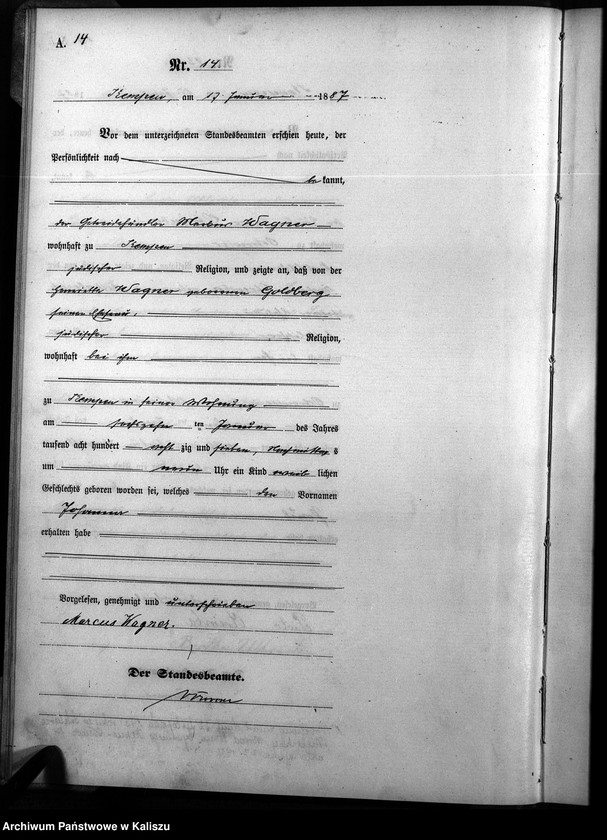 A. 14
Nr. 14.
Kempen, am 17 Januar 1887
Vor dem unterzeichneten Standesbeamten erschien heute, der
Persönlichkeit nach
bekannt,
der Getreidehändler Markus Wagner
wohnhaft zu Kempen
jüdischer Religion, und zeigte an, daß von der
Henriette Wagner geborenen Goldberg
seiner Ehefrau,
jüdischer Religion,
wohnhaft bei ihm
zu Kempen in seiner Wohnung
am sechszehnten Januar des Jahres
tausend acht hundert achtzig und sieben, Nachmittags
um neun Uhr ein Kind weiblichen
Geschlechts geboren worden sei, welches den Vornamen
Johanna
erhalten habe
Vorgelesen, genehmigt und unterschrieben
Marcus Wagner.
Der Standesbeamte.
Archiwum Państwowe w Kaliszu